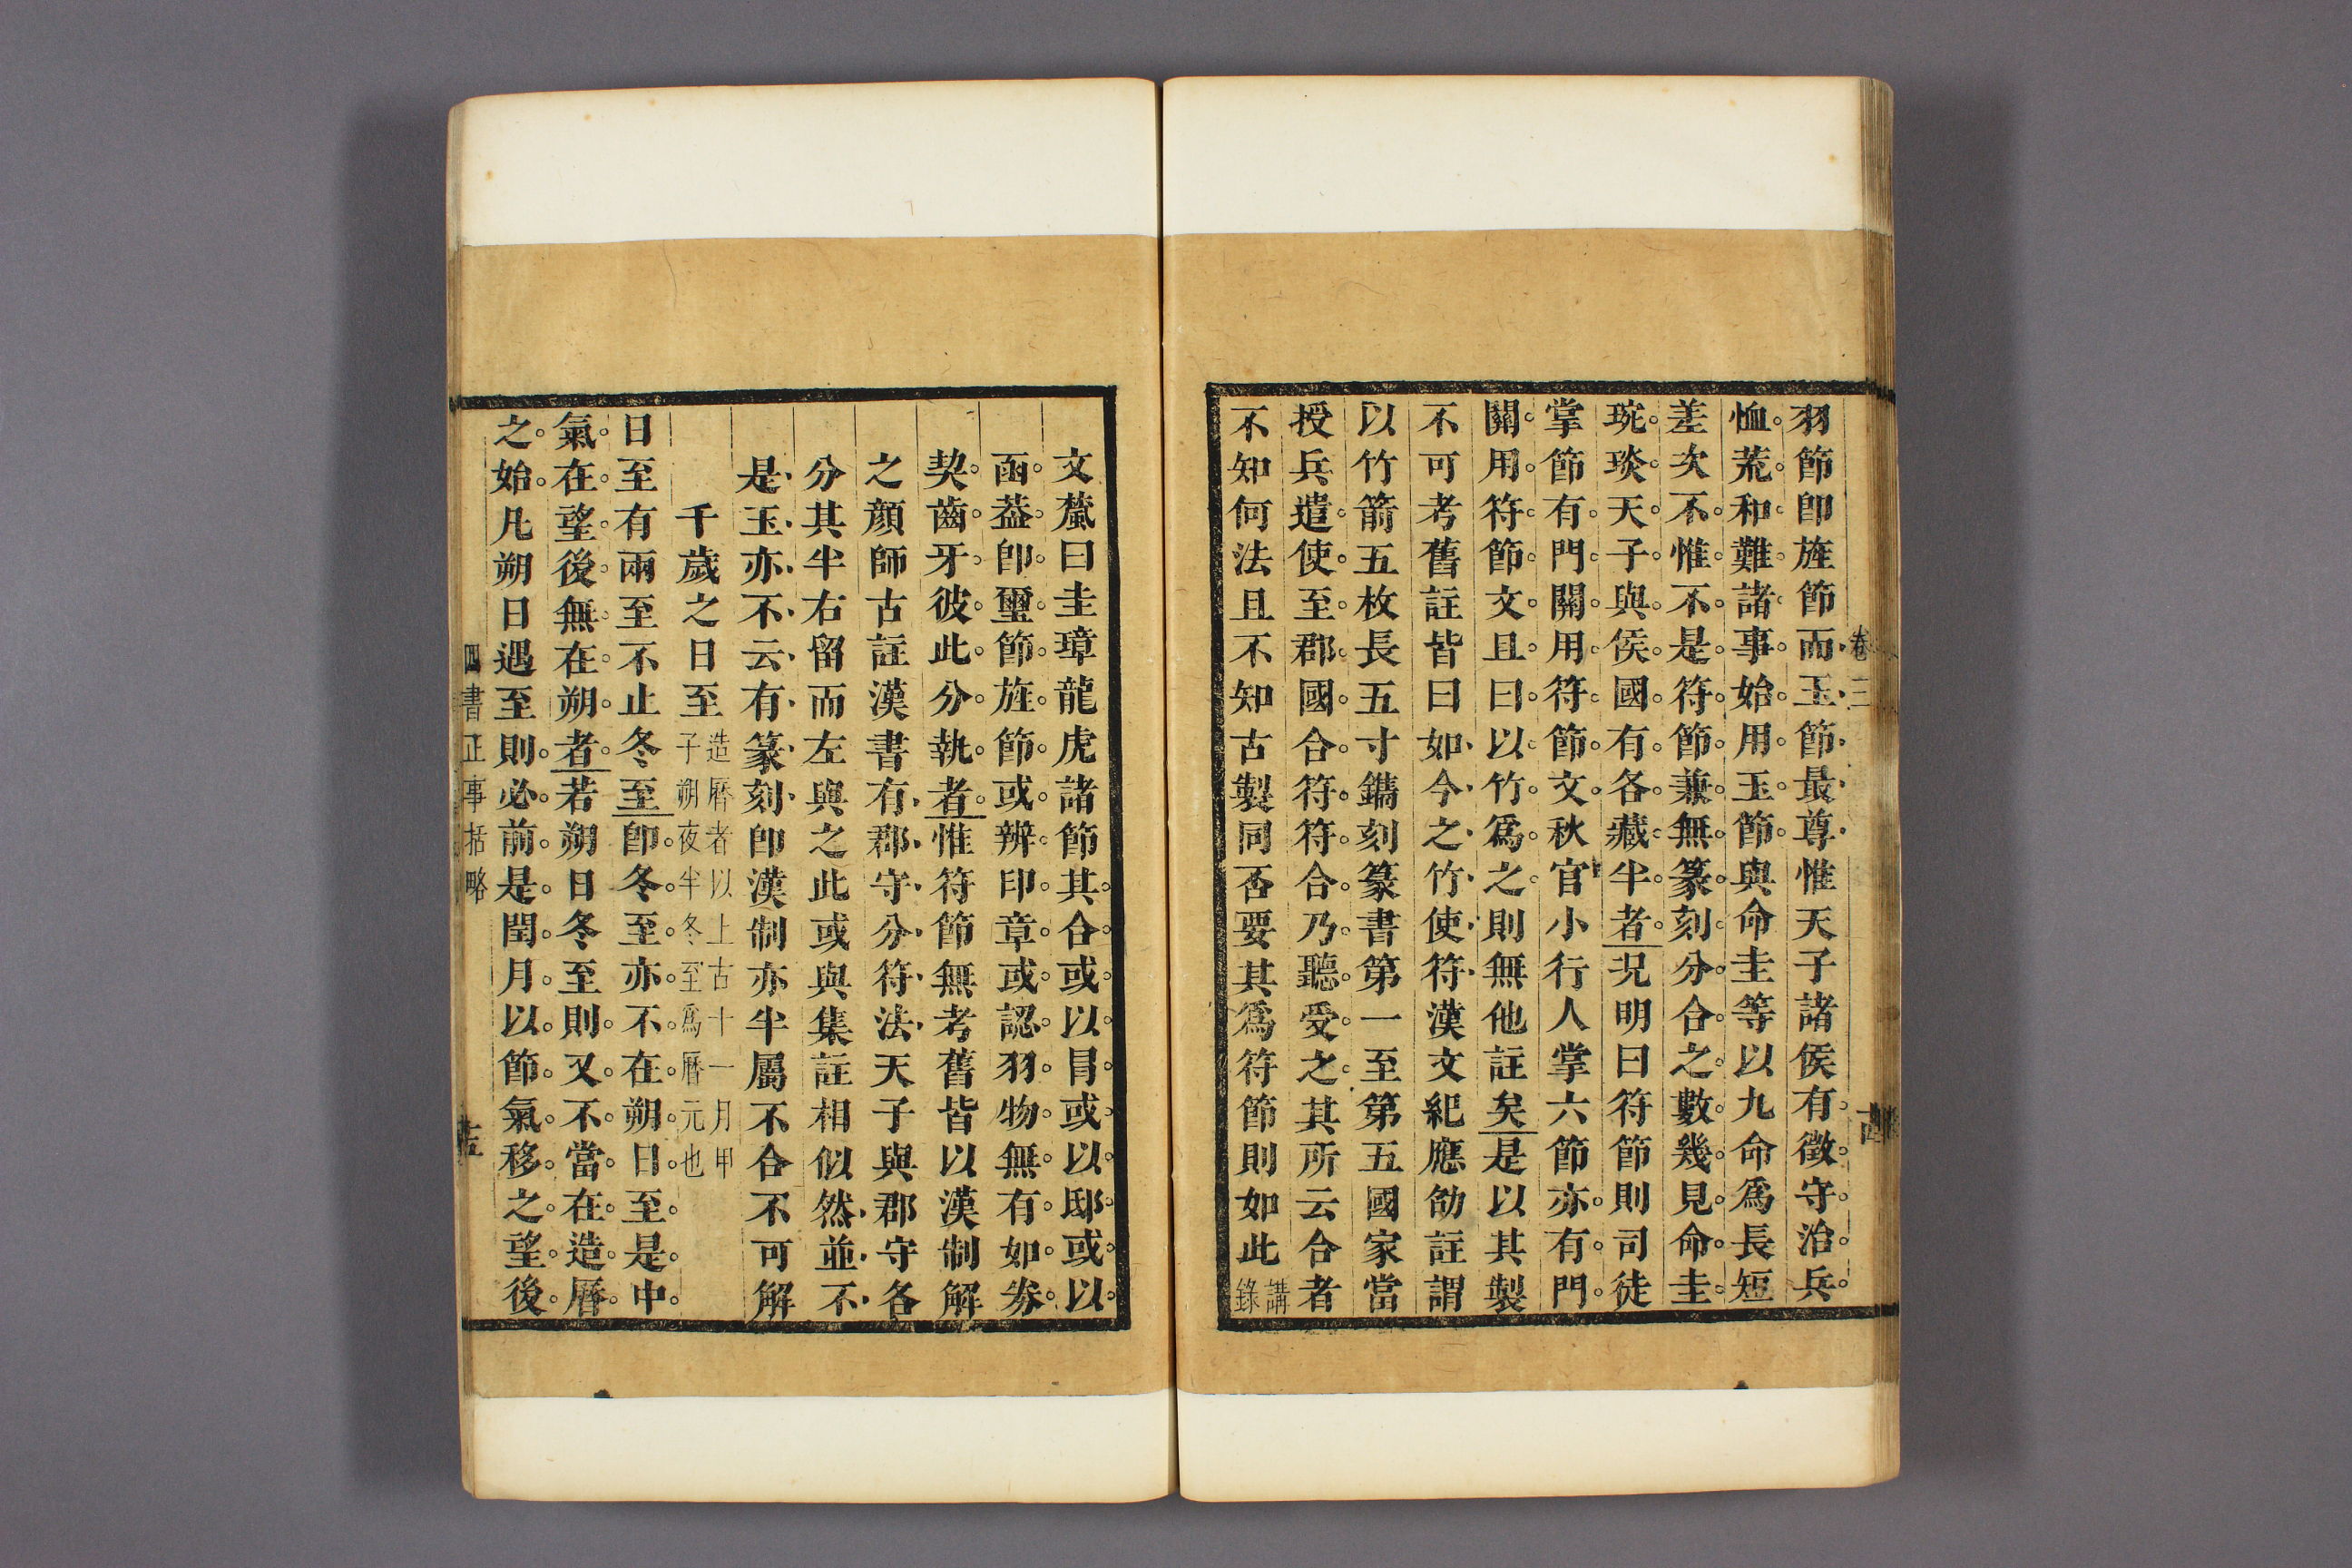 卷三
羽節卽旌節而玉節最尊惟天子諸侯有徵守治兵
恤荒和難諸事始用玉節與命圭等以九命爲長短
差次不惟不是符節兼無篆刻分合之數幾見命圭
琬琰天子與侯國有各藏半者況明曰符節則司徒
掌節有門關用符節文秋官小行人掌六節亦有門
關用符節文且曰以竹爲之則無他註矣是以其製
不可考舊註皆曰如今之竹使符漢文紀應劭註謂
以竹箭五枚長五寸鐫刻篆書第一至第五國家當
授兵遣使至郡國合符符合乃聽受之其所云合者
不知何法且不知古製同否要其爲符節則如此講錄
文虨曰圭璋龍虎諸節其合或以冐或以邸或以
函葢卽璽節旌節或辨印章或認羽物無有如劵
契齒牙彼此分執者惟符節無考舊皆以漢制解
之顏師古註漢書有郡守分符法天子與郡守各
分其半右留而左與之此或與集註相似然並不
是玉亦不云有篆刻卽漢制亦半屬不合不可解
千歲之日至造曆者以上古十一月甲子朔夜半冬至爲曆元也
日至有兩至不止冬至卽冬至亦不在朔日至是中
氣在望後無在朔者若朔日冬至則又不當在造曆
之始凡朔日遇至則必前是閏月以節氣移之望後
四書正事括略